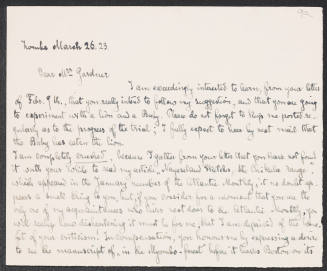 Zomba March 26. 23.
Dear Mrs Gardner
I am exceedingly interested to learn, from your letter
of Feb. 9th, that you really intend to follow my suggestion, and that you are going
to experiment with a lion and a Baby. Please do not forget to keep me posted re-
gularly as to the progress of the trial; I fully expect to hear by next mail that
the Baby has eaten the lion.
I am completely crushed, because I gather from your letter that you have not found
it worth your while to read my article, Nyasaland Sketches, the
which appeared in the January number of the Atlantic Monthly; it no doubt ap-
pears a small thing to you, but if you consider for a moment that you are the
only one of my acquaintances who lives next door to the Atlantic Monthly, you
will realise how disconcerting it must be for me, that I am deprived of the bene-
fit of your criticism. In compensation, you honour me by expressing a desire
to see the manuscript of, in the Myombo-forest before it leaves Boston on its